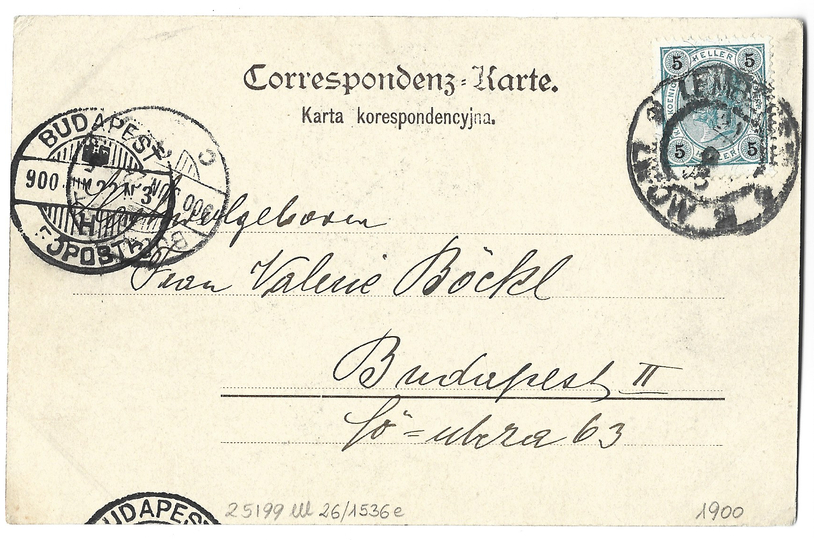 Correspondenz-Karte.
Karta korespondencyjna.
5 KELLER 5
5 5
LEMBERG
BUDAPEST
900 JUN 22 N 3
H
FŐPOSTA
Frau Valerie Böckl
Budapest II
Fő-utcza 63
BUDAPEST
25199 26/1536e
1900